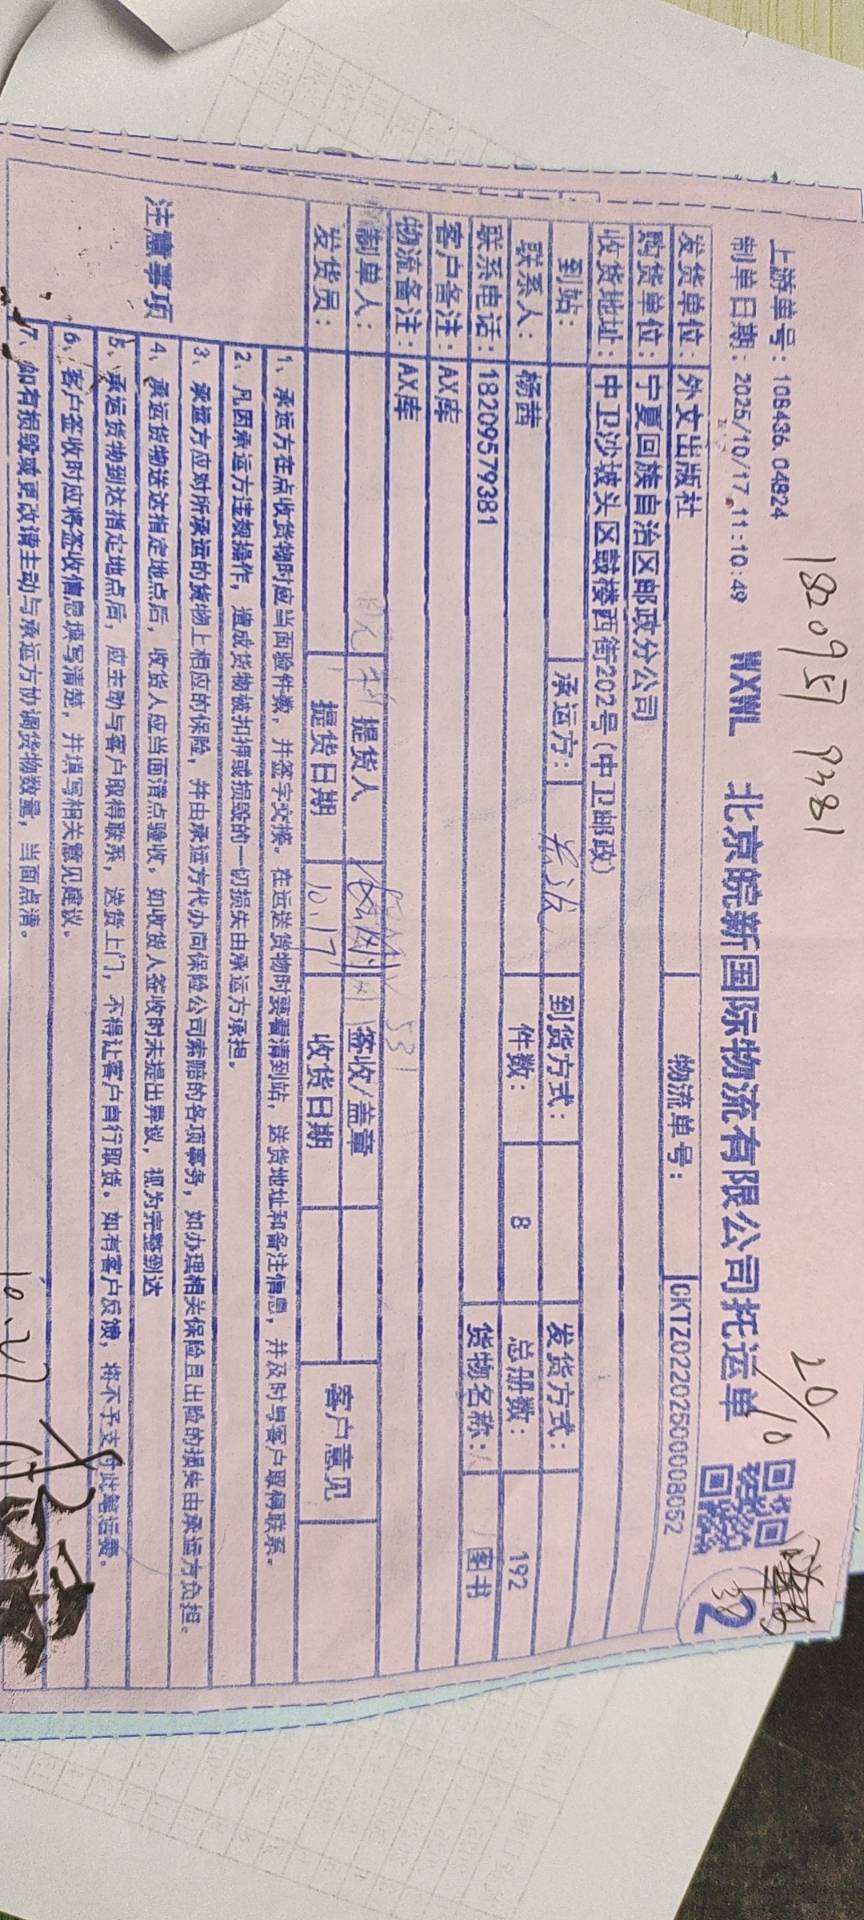 18209519381
20/10
上游单号：108436.04824
制单日期：2025/10/17 11:10:49 WXWL 北京皖新国际物流有限公司托运单 2
发货单位：外文出版社 物流单号：CKTZ02202500008052
购货单位：宁夏回族自治区邮政分公司
收货地址：中卫沙坡头区鼓楼西街202号(中卫邮政)
到站： 承运方： 到货方式： 发货方式：
联系人：杨茜 件数： 8 总册数： 192
联系电话：18209579381 货物名称： 图书
客户备注：AX库
物流备注：AX库
制单人： 提货人 签收/盖章 客户意见
发货员： 提货日期 10.17 收货日期
注意事项
1、承运方在点收货物时应当面验件数，并签字交接。在运送货物时要看清到站，送货地址和备注信息，并及时与客户取得联系。
2、凡因承运方违规操作，造成货物被扣押或损毁的一切损失由承运方承担。
3、承运方应对所承运的货物上相应的保险，并由承运方代办向保险公司索赔的各项事务，如办理相关保险且出险的损失由承运方负担。
4、承运货物送达指定地点后，收货人应当面清点验收，如收货人签收时未提出异议，视为完整到达
5、承运货物到达指定地点后，应主动与客户取得联系，送货上门，不得让客户自行取货。如有客户反馈，将不予支付此笔运费。
6、客户签收时应将签收信息填写清楚，并填写相关意见建议。
7、如有损毁或更改请主动与承运方协调货物数量，当面点清。